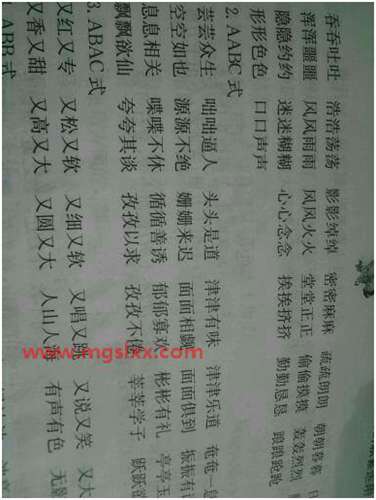 吞吞吐吐 浩浩荡荡 影影绰绰 密密麻麻 疏疏朗朗 朝朝暮暮
浑浑噩噩 风风雨雨 风风火火 堂堂正正 偷偷摸摸 轰轰烈烈
隐隐约约 迷迷糊糊 心心念念 挨挨挤挤 勤勤恳恳 踉踉跄跄
形形色色 口口声声
2. AABC 式
芸芸众生 咄咄逼人 头头是道 津津有味 津津乐道 奄奄一
空空如也 源源不绝 姗姗来迟 面面相觑 面面俱到 振振有
息息相关 喋喋不休 循循善诱 郁郁寡欢 彬彬有礼 亭亭玉
飘飘欲仙 夸夸其谈 孜孜以求 孜孜不倦 莘莘学子 跃跃
3. ABAC 式
又红又专 又松又软 又细又软 又唱又跳 又说又笑 又大
又香又甜 又高又大 又圆又大 人山人海 有声有色 无影
ABB 式
www.mgslxx.com